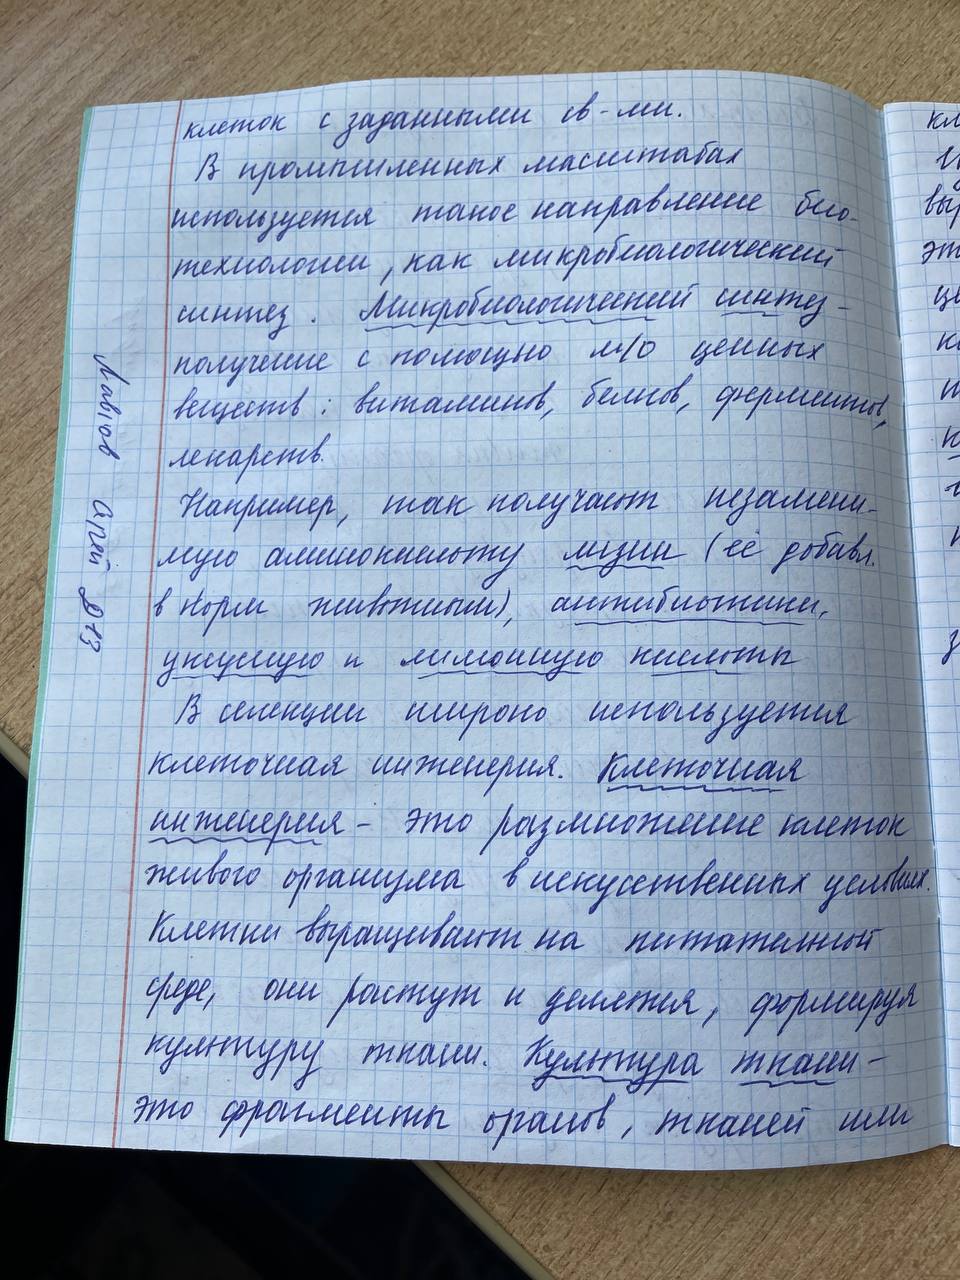 клеток с заданными св-ми.
В промышленных масштабах
используется такое направление био-
технологии, как микробиологический
синтез. Микробиологический синтез -
получение с помощью м/о ценных
веществ: витаминов, белков, ферментов,
лекарств.
Например, так получают незамени-
мую аминокислоту лизин (её добавл.
в корм животным), антибиотики,
уксусную и лимонную кислоты
В селекции широко используется
клеточная инженерия. Клеточная
инженерия - это размножение клеток
живого организма в искусственных условиях.
Клетки выращивают на питательной
среде, они растут и делятся, формируя
культуру ткани. Культура ткани -
это фрагменты органов, тканей или